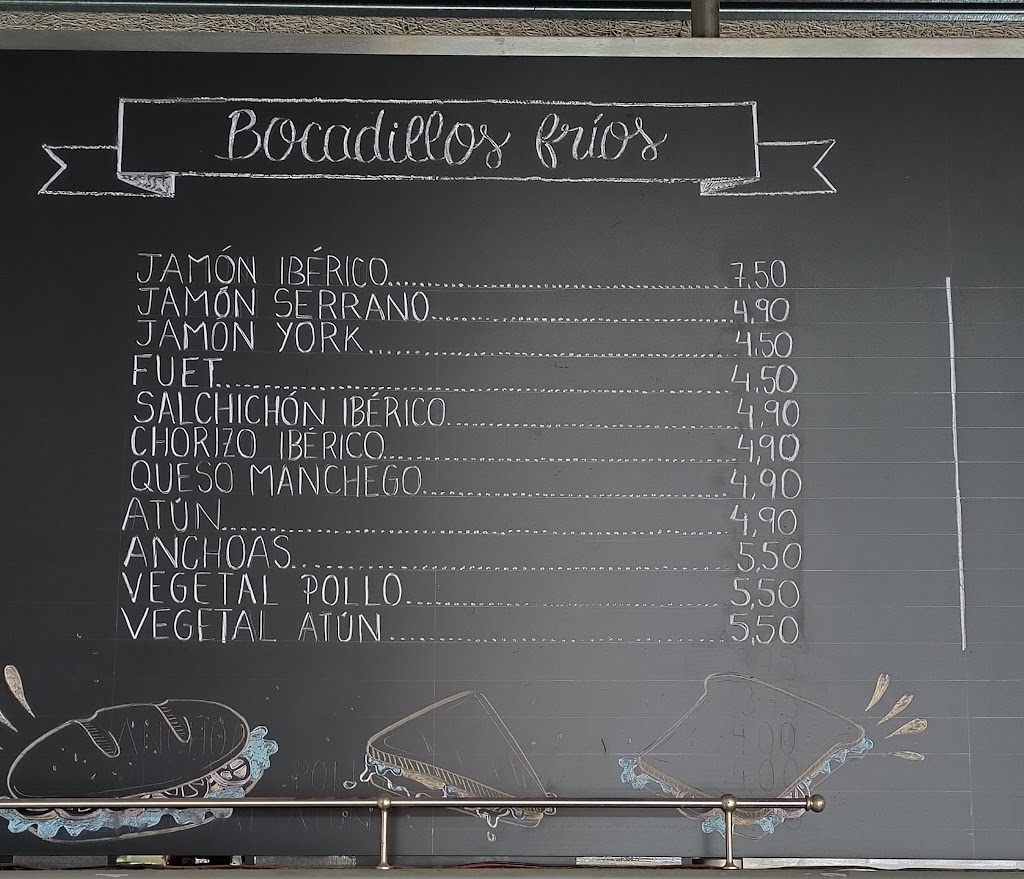 Bocadillos fríos
JAMÓN IBÉRICO 7,50
JAMÓN SERRANO 4,90
JAMÓN YORK 4,50
FUET 4,50
SALCHICHÓN IBÉRICO 4,90
CHORIZO IBÉRICO 4,90
QUESO MANCHEGO 4,90
ATÚN 4,90
ANCHOAS 5,50
VEGETAL POLLO 5,50
VEGETAL ATÚN 5,50